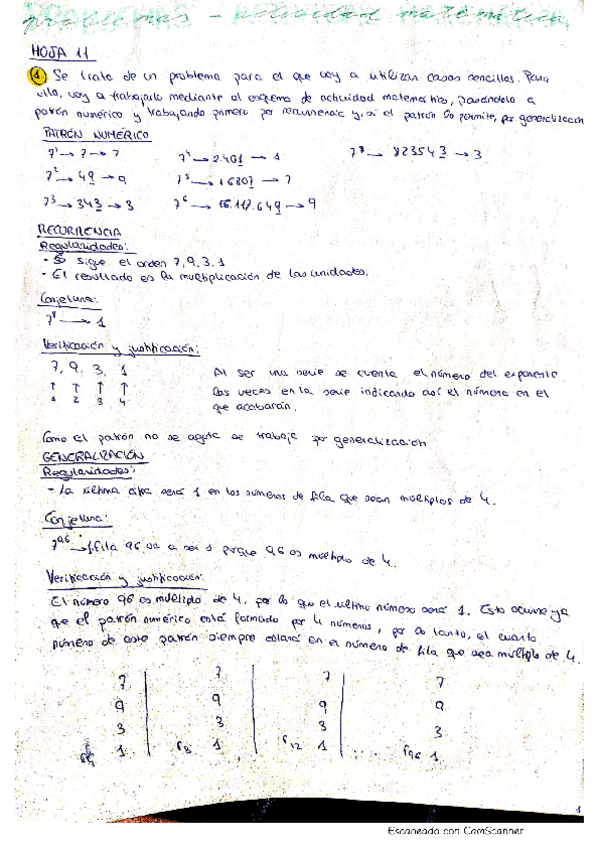 problemas - actividad matemática
HOJA 11
1 Se trata de un problema para el que voy a utilizar casos sencillos. Para
ello, voy a trabajarlo mediante el esquema de actividad matemático, pasándolo a
patrón numérico y trabajando primero por recurrencia y, si el patrón lo permite, por generalización
PATRÓN NUMÉRICO
7¹ → 7 → 7 7⁴ → 2.401 → 1 7⁷ → 823543 → 3
7² → 49 → 9 7⁵ → 16807 → 7
7³ → 343 → 3 7⁶ → 16.117.649 → 9
RECURRENCIA
Regularidades:
- Se sigue el orden 7, 9, 3, 1
- El resultado es la multiplicación de las unidades.
Conjetura:
7⁸ → 1
Verificación y justificación:
7, 9, 3, 1 Al ser una serie se cuenta el número del exponente
↑ ↑ ↑ ↑ las veces en la serie indicando así el número en el
1 2 3 4 que acabarán.
Como el patrón no se agota se trabaja por generalización
GENERALIZACIÓN
Regularidades:
- La última cifra será 1 en los números de fila que sean múltiplos de 4.
Conjetura:
7⁹⁶ → fila 96 va a ser 1 porque 96 es múltiplo de 4.
Verificación y justificación:
El número 96 es múltiplo de 4, por lo que el último número será 1. Esto ocurre ya
que el patrón numérico está formado por 4 números, por lo tanto, el cuarto
número de este patrón siempre estará en el número de fila que sea múltiplo de 4.
7 | 7 | 7 7
9 | 9 | 9 9
3 | 3 | 3 3
f4 1 | f8 1 | f12 1 .... f96 1
1
Escaneado con CamScanner